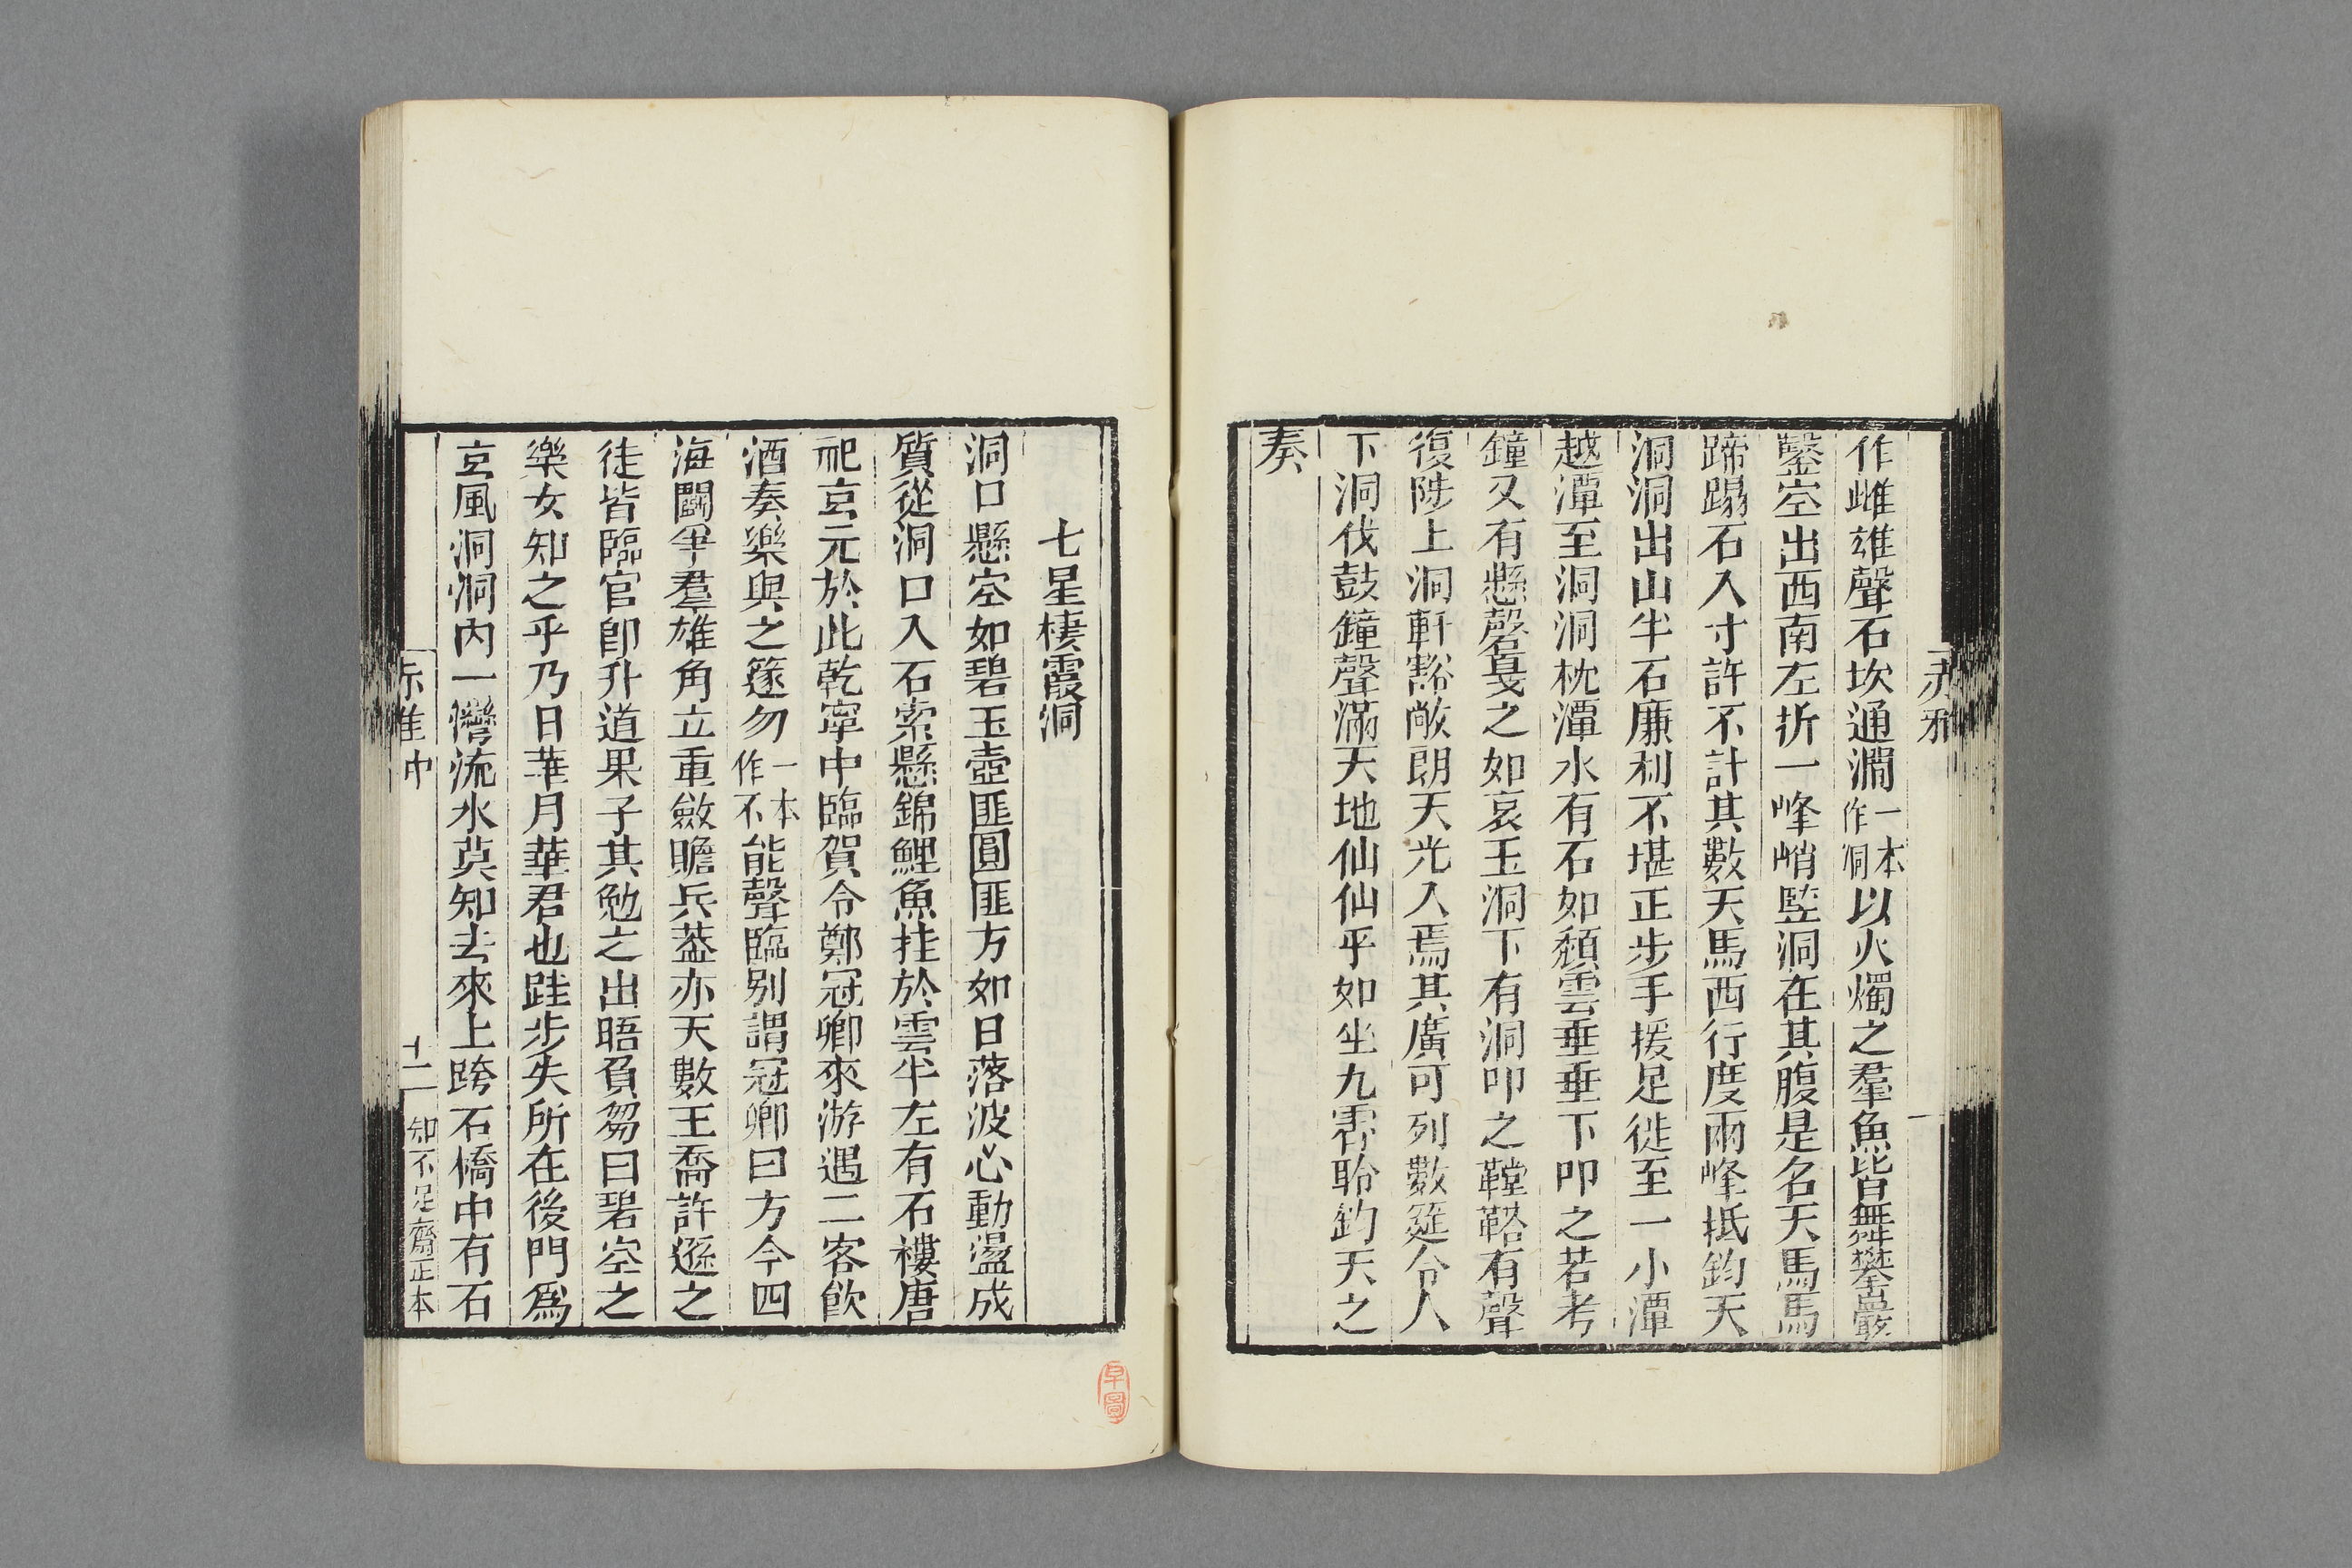 作雌雄聲石坎通㵎一本作洞以火燭之羣魚皆舞攀巖
鑿空出西南左折一峰峭竪洞在其腹是名天馬馬
蹄蹋石入寸許不計其數天馬西行度兩峰抵鈞天
洞洞出山半石廉利不堪正步手援足徙至一小潭
越潭至洞洞枕潭水有石如頹雲垂垂下叩之若考
鐘又有懸磬戛之如哀玉洞下有洞叩之鞺鞳有聲
復陟上洞軒豁敞朗天光入焉其廣可列數筵令人
下洞伐鼓鐘聲滿天地仙仙乎如坐九霄聆鈞天之
奏
七星棲霞洞
洞口懸空如碧玉壺匪圓匪方如日落波心動盪成
質從洞口入石索懸錦鯉魚挂於雲半左有石樓唐
祀玄元於此乾寧中臨賀令鄭冠卿來游遇二客飮
酒奏樂與之籧勿一本作不能聲臨別謂冠卿曰方今四
海鬭爭羣雄角立重斂贍兵葢亦天數王喬許遜之
徒皆臨官卽升道果子其勉之出晤負芻曰碧空之
樂女知之乎乃日華月華君也跬步失所在後門爲
玄風洞洞内一灣流水莫知去來上跨石橋中有石
赤雅中
十二
知不足齋正本